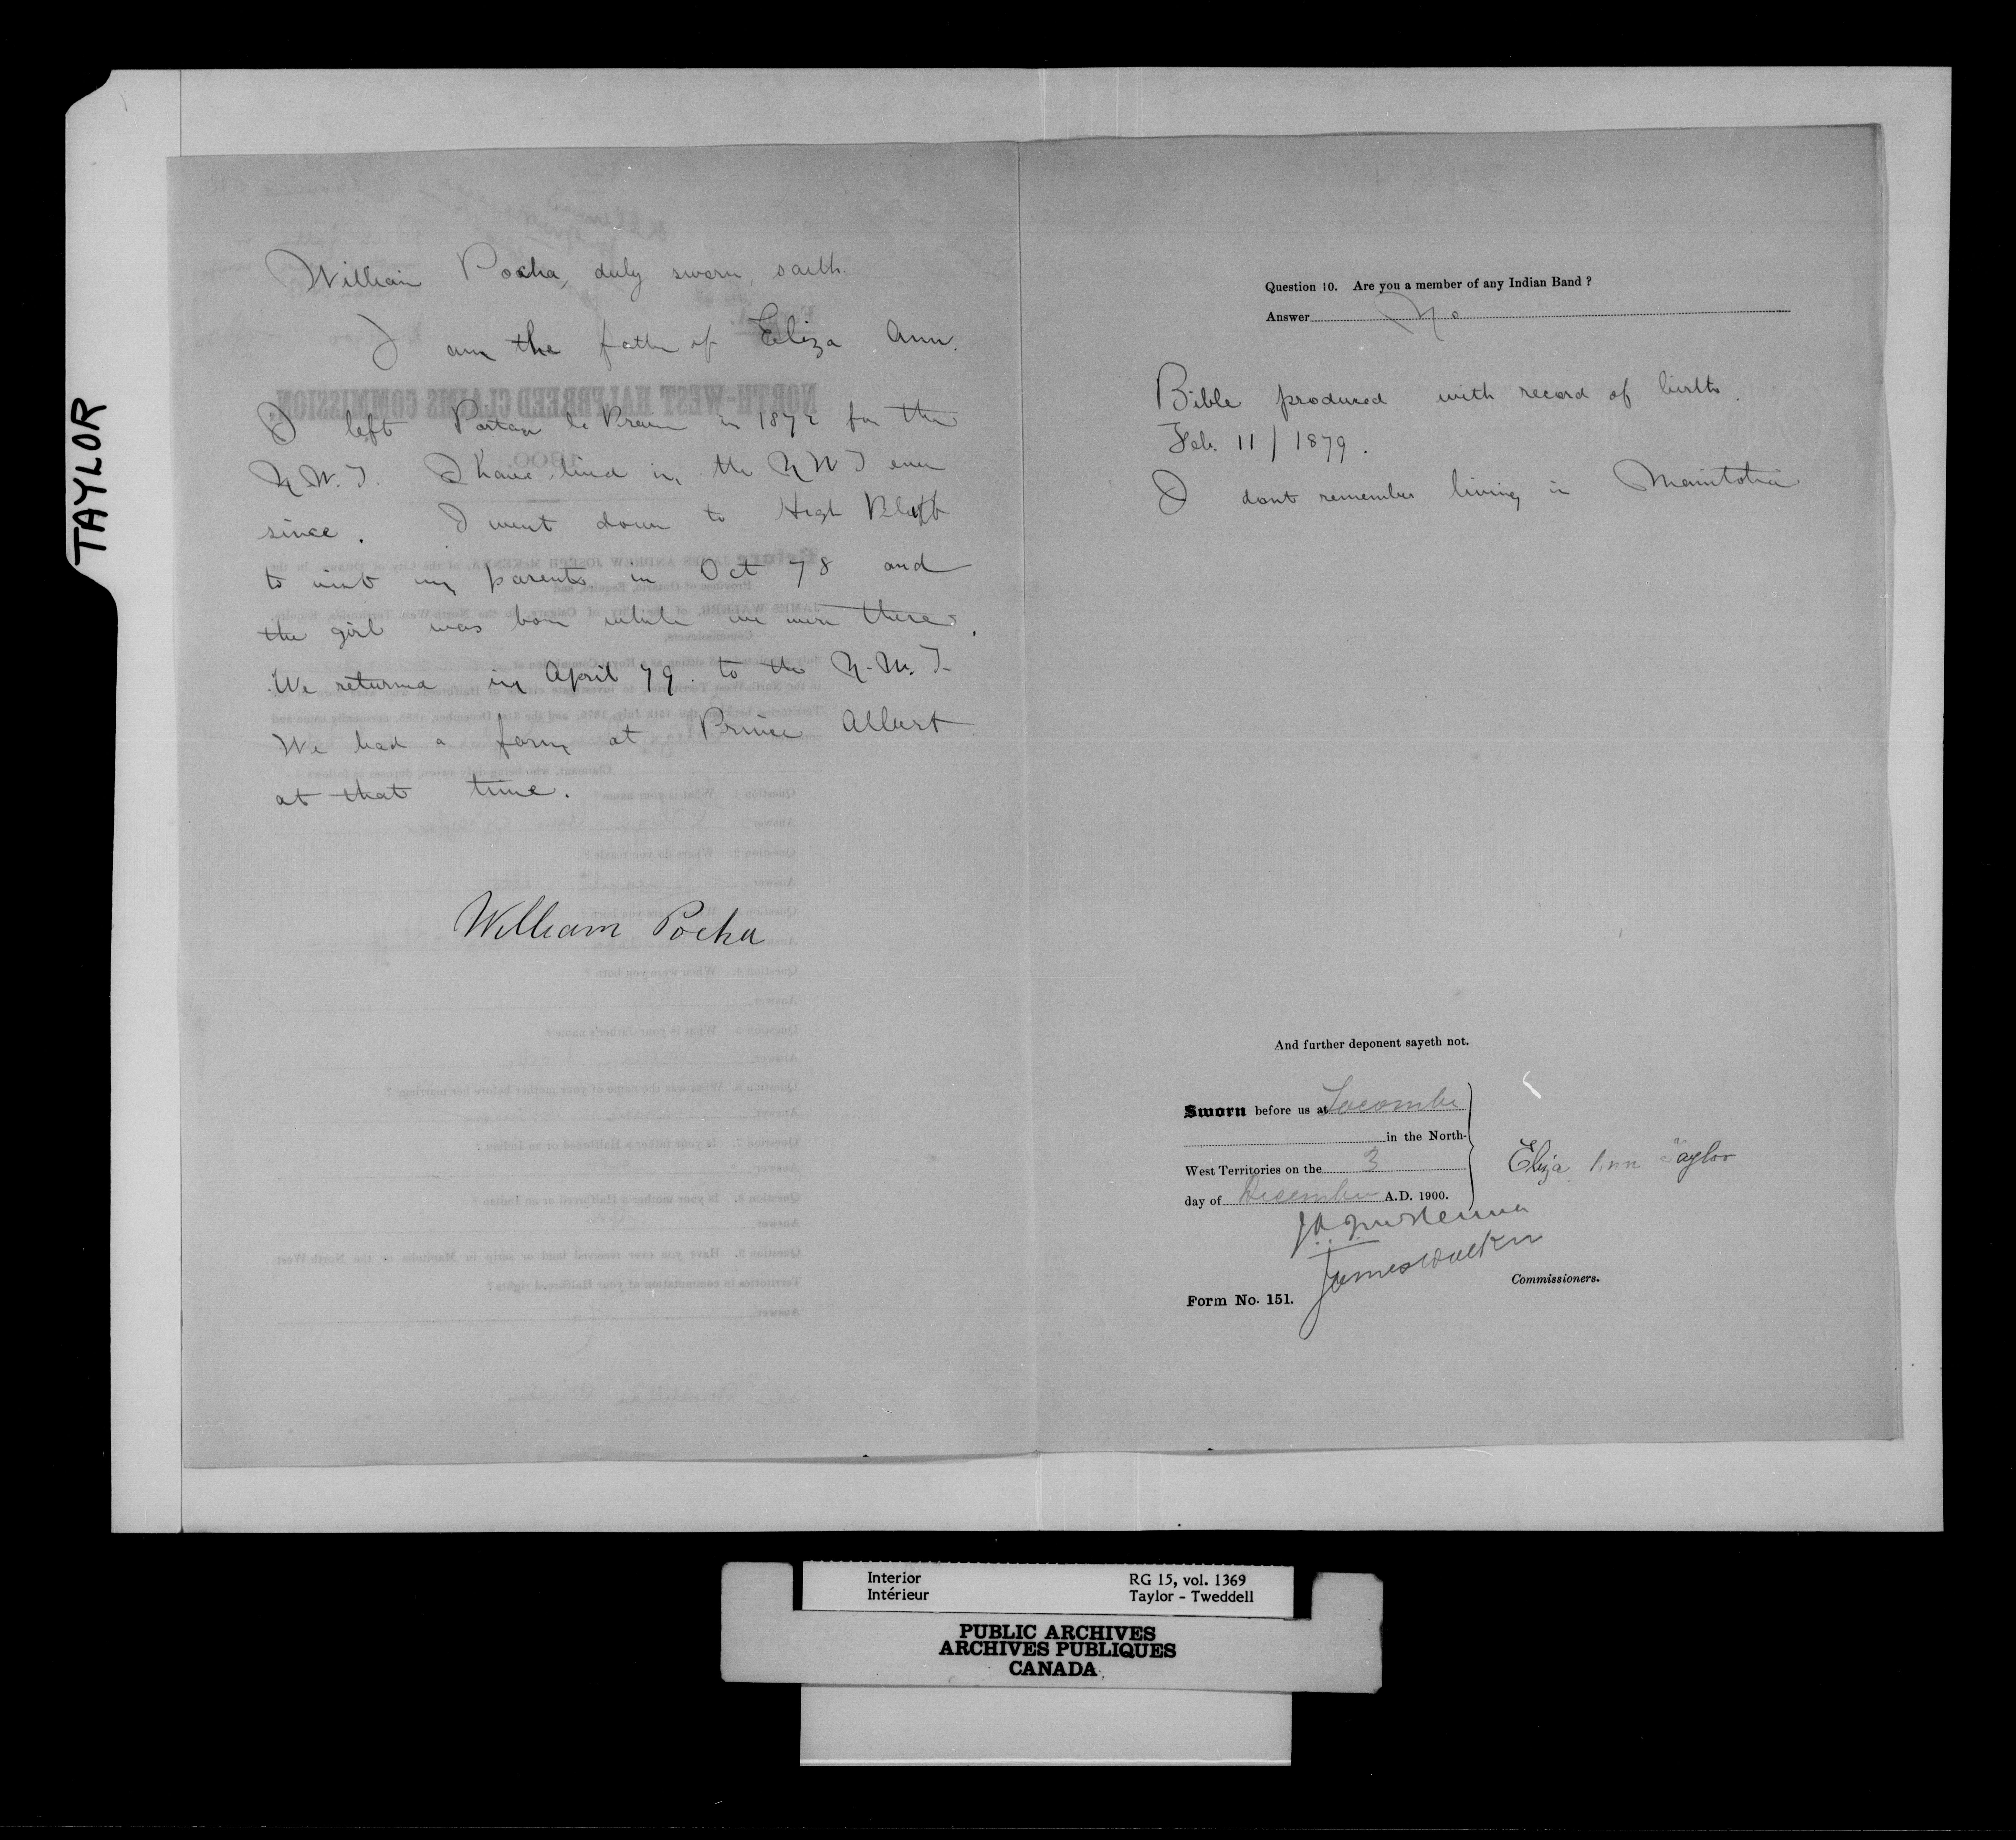 TAYLOR
William Pocha, duly sworn, saith.
I am the father of Eliza Ann.
I left Portage la Prairie in 1872 for the
N.W.T. I have lived in the N W T ever
since. I went down to High Bluff
to visit my parents in Oct 78 and
the girl was born while we were there.
We returned in April 79 to the N.W.T.
We had a farm at Prince Albert
at that time.
William Pocha
Question 10. Are you a member of any Indian Band ?
Answer No
Bible produced with record of birth.
Feb. 11 / 1879.
I dont remember living in Manitoba
And further deponent sayeth not.
Sworn before us at Lacombe
in the North-
West Territories on the 3
day of December A.D. 1900.
Eliza Ann Taylor
J A J McKenna
James Walker
Commissioners.
Form No. 151.
Interior
Intérieur
RG 15, vol. 1369
Taylor - Tweddell
PUBLIC ARCHIVES
ARCHIVES PUBLIQUES
CANADA